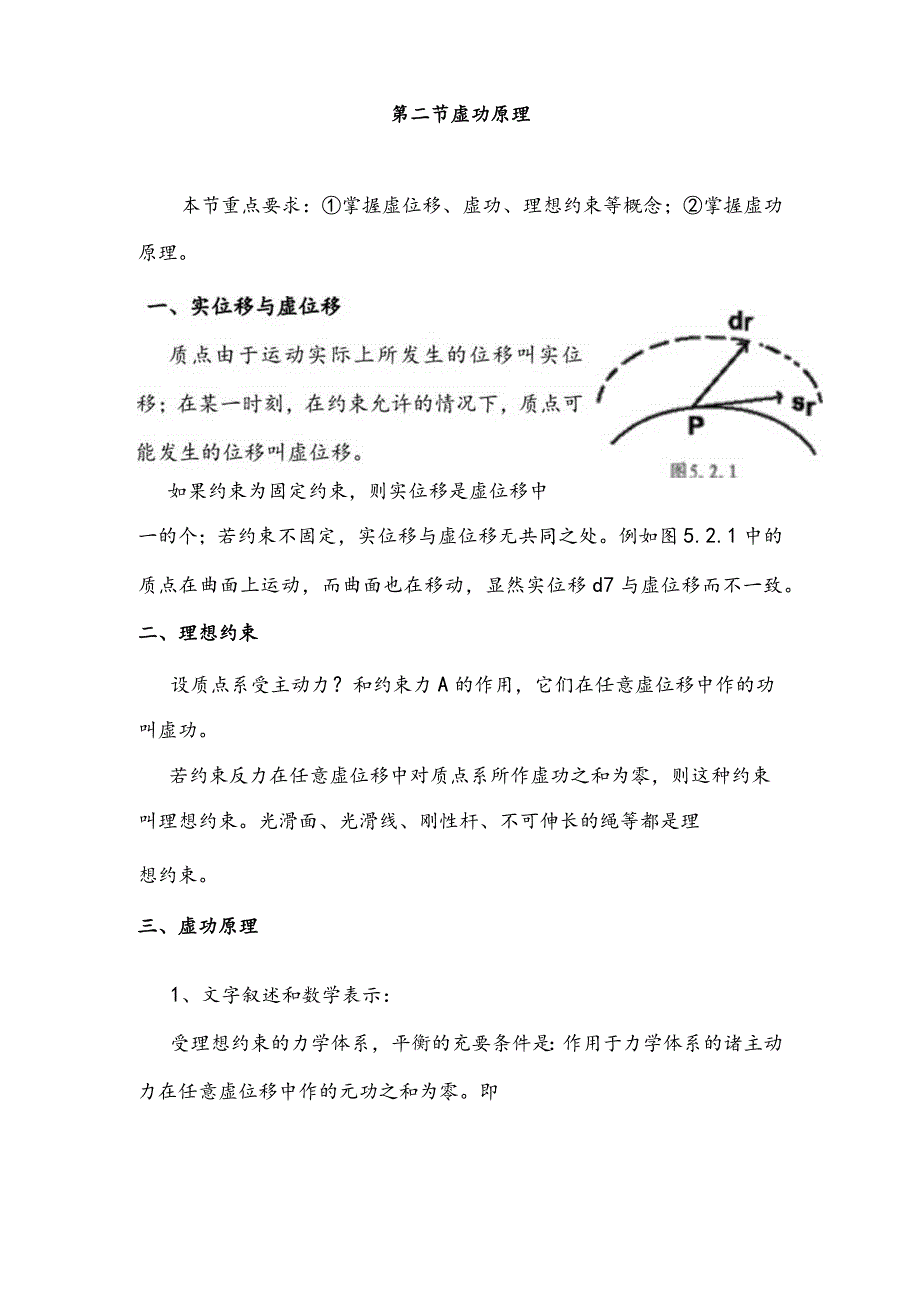 第二节虚功原理
本节重点要求：①掌握虚位移、虚功、理想约束等概念；②掌握虚功
原理。
一、实位移与虚位移
质点由于运动实际上所发生的位移叫实位
移；在某一时刻，在约束允许的情况下，质点可
能发生的位移叫虚位移。
dr
sr
P
图5.2.1
如果约束为固定约束，则实位移是虚位移中
一的个；若约束不固定，实位移与虚位移无共同之处。例如图5.2.1中的
质点在曲面上运动，而曲面也在移动，显然实位移d7与虚位移而不一致。
二、理想约束
设质点系受主动力？和约束力A的作用，它们在任意虚位移中作的功
叫虚功。
若约束反力在任意虚位移中对质点系所作虚功之和为零，则这种约束
叫理想约束。光滑面、光滑线、刚性杆、不可伸长的绳等都是理
想约束。
三、虚功原理
1、文字叙述和数学表示：
受理想约束的力学体系，平衡的充要条件是：作用于力学体系的诸主动
力在任意虚位移中作的元功之和为零。即